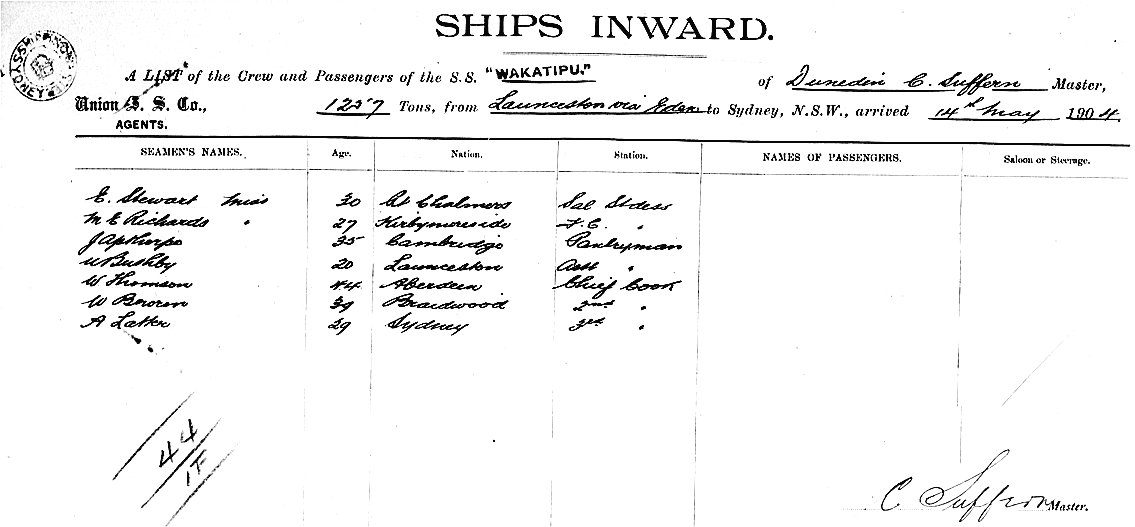 SHIPS INWARD.
A LIST of the Crew and Passengers of the S.S. "WAKATIPU." of Dunedin C. Suffern Master,
Union S. S. Co., 1257 Tons, from Launceston via Eden to Sydney, N.S.W., arrived 14th May 1904.
AGENTS.
SEAMEN'S NAMES. Age. Nation. Station. NAMES OF PASSENGERS. Saloon or Steerage.
E. Stewart Miss 30 Pt Chalmers Sal Stdess
M E Richards " 27 Kirbymoreside F.C. "
J Apthorpe 35 Cambridge Pantryman
Bushby 20 Launceston Asst "
W Thomson 44 Aberdeen Chief Cook
W 39 Braidwood 2nd "
A Latter 29 Sydney 3rd "
44
1F
C Suffern Master.